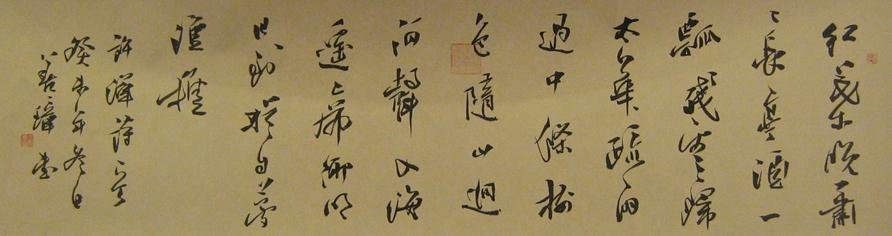 红葉晚蕭
々長亭酒一
瓢殘雲歸
太華疏雨
過中條樹
色隨山迥
河聲入海
遥帝鄉明
日到猶自夢
漁樵
許渾詩
癸未年冬日
書